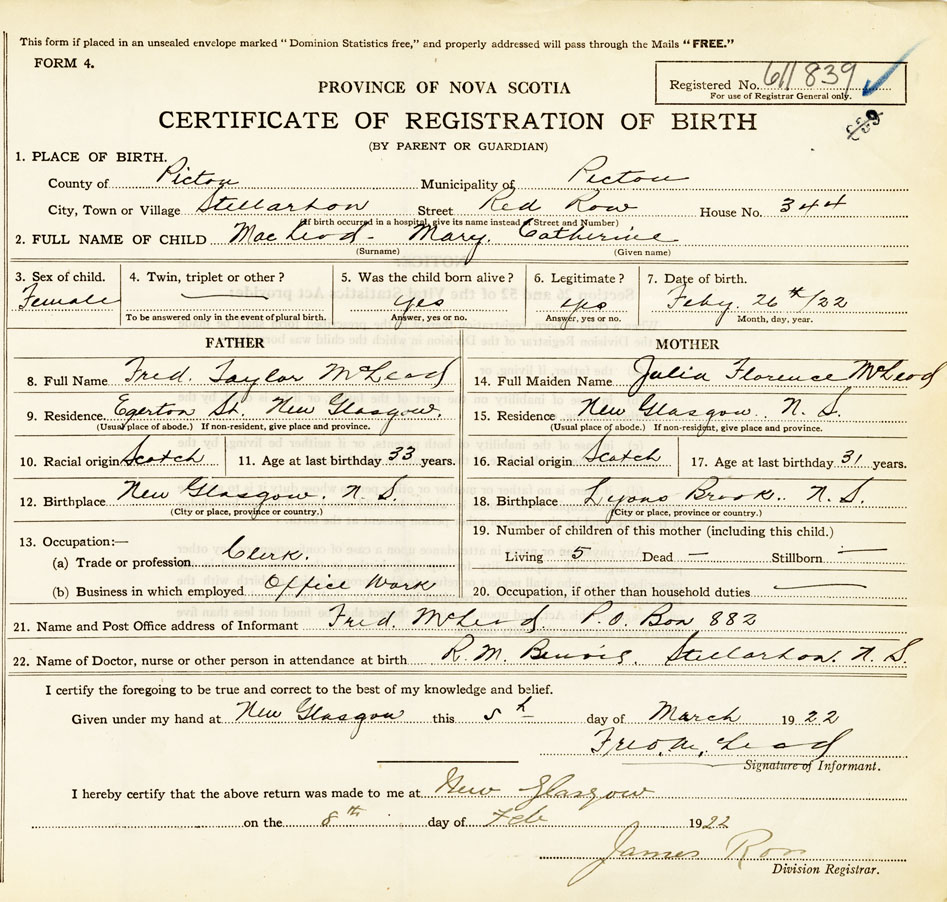 This form if placed in an unsealed envelope marked "Dominion Statistics free," and properly addressed will pass through the Mails "FREE."
FORM 4.
Registered No. 611839
For use of Registrar General only.
PROVINCE OF NOVA SCOTIA
CERTIFICATE OF REGISTRATION OF BIRTH
(BY PARENT OR GUARDIAN)
1. PLACE OF BIRTH.
County of Pictou Municipality of Pictou
City, Town or Village Stellarton Street Red Row House No. 344
(If birth occurred in a hospital, give its name instead of Street and Number)
2. FULL NAME OF CHILD MacLeod - Mary. Catherine
(Surname) (Given name)
3. Sex of child. 4. Twin, triplet or other? 5. Was the child born alive? 6. Legitimate? 7. Date of birth.
Female — yes yes Feby. 26th/22
To be answered only in the event of plural birth. Answer, yes or no. Answer, yes or no. Month, day, year.
FATHER MOTHER
8. Full Name Fred. Taylor McLeod 14. Full Maiden Name Julia Florence McLeod
9. Residence Egerton St. New Glasgow. 15. Residence New Glasgow. N. S.
(Usual place of abode.) If non-resident, give place and province. (Usual place of abode.) If non-resident, give place and province.
10. Racial origin Scotch 11. Age at last birthday 33 years. 16. Racial origin Scotch 17. Age at last birthday 31 years.
12. Birthplace New Glasgow. N. S. 18. Birthplace Lyons Brook. N. S.
(City or place, province or country.) (City or place, province or country.)
13. Occupation:— 19. Number of children of this mother (including this child.)
(a) Trade or profession Clerk. Living 5 Dead — Stillborn —
(b) Business in which employed Office Work 20. Occupation, if other than household duties —
21. Name and Post Office address of Informant Fred. McLeod. P.O. Box 882
22. Name of Doctor, nurse or other person in attendance at birth R. M. Stellarton. N. S.
I certify the foregoing to be true and correct to the best of my knowledge and belief.
Given under my hand at New Glasgow this 5th day of March 1922
Fred. McLeod
Signature of Informant.
I hereby certify that the above return was made to me at New Glasgow
on the 8th day of Feb 1922
James
Division Registrar.